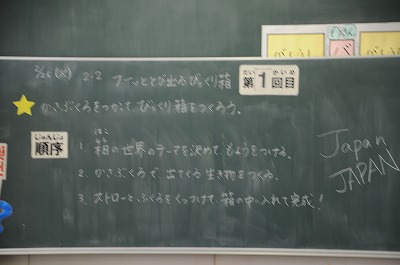 2-2 フーッととび出るびっくり箱
だい かいめ
第1回目
かさぶくろをつかって、びっくり箱をつくろう。
じゅんじょ
順序
はこ
1. 箱の世界のテーマを決めて、もようをつける。
2. かさぶくろで、出てくる生き物をつくる。
3. ストローと、ふくろをくっつけて、箱の中へ入れて完成!
Japan
JAPAN